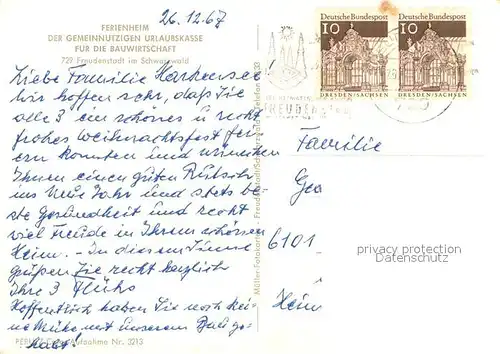 26.12.67
FERIENHEIM
DER GEMEINNUTZIGEN URLAUBSKASSE
FÜR DIE BAUWIRTSCHAFT
729 Freudenstadt im Schwarzwald
Liebe Familie
wir hoffen sehr, daß Sie
alle 3 ein schönes u recht
frohes Weihnachtsfest fei-
ern konnten und wünschen
Ihnen einen guten Rutsch
ins Neue Jahr und stets be-
ste Gesundheit und recht
viel Freude in Ihrem schönen
Heim. - In diesem Sinne
grüßen Sie recht herzlich
Ihre 3
Hoffentlich haben Sie noch kei-
ne Mühe mit unserem ge-
habt!
PERU Aufnahme Nr. 3213
Müller-Fotokarten - Freudenstadt/Schwarzwald Telefon
Deutsche Bundespost
10
DRESDEN/SACHSEN
Deutsche Bundespost
10
DRESDEN/SACHSEN
FREUDENSTADT
Familie
Geo
6101
Hein
privacy protection
Datenschutz